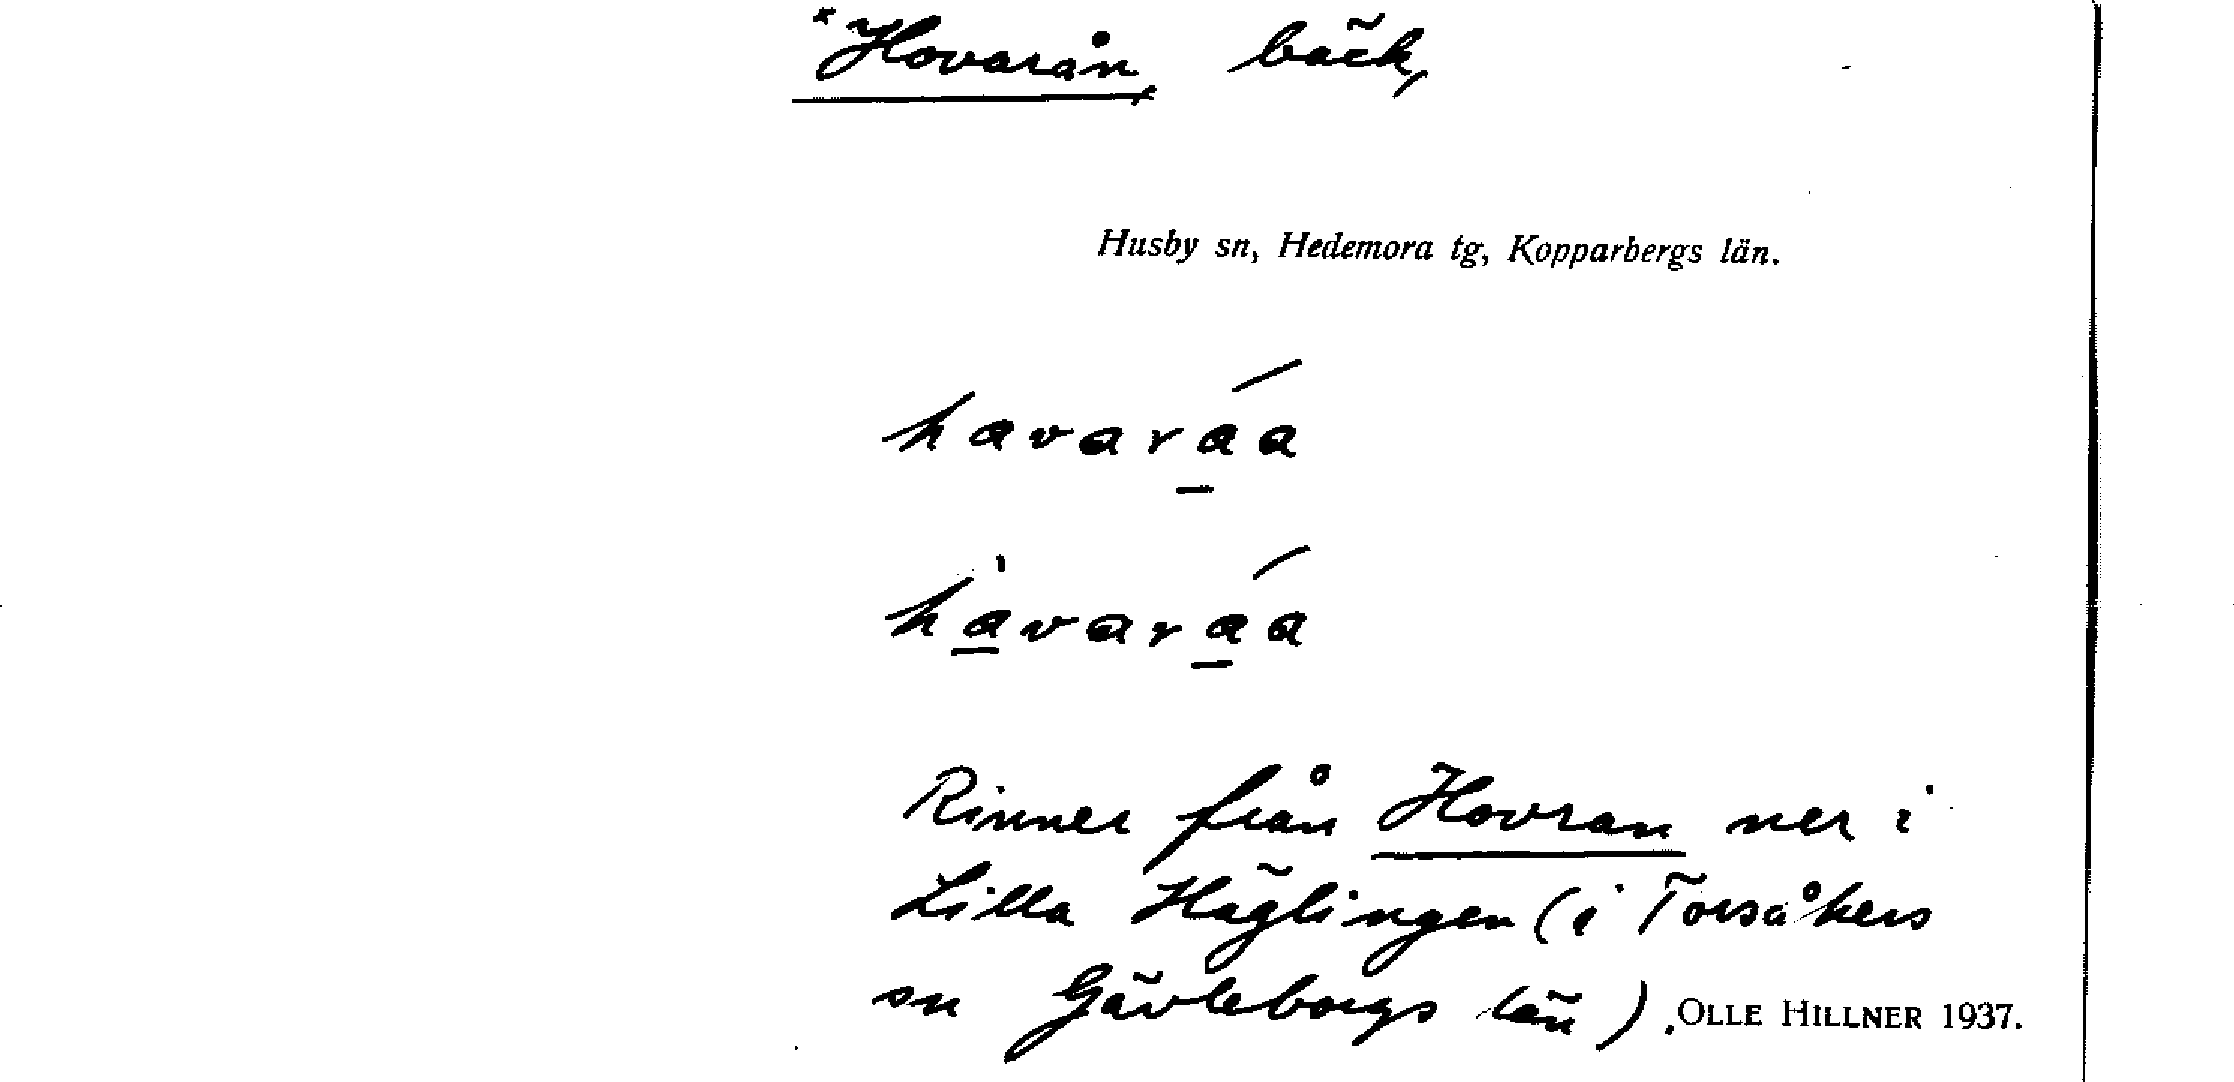 *Hovarån, bäck,
Husby sn, Hedemora tg, Kopparbergs län.
havaráa
hàvaráa
Rinner från Hovran ner i
Lilla Häglingen (i Torsåkers
sn Gävleborgs län).
OLLE HILLNER 1937.